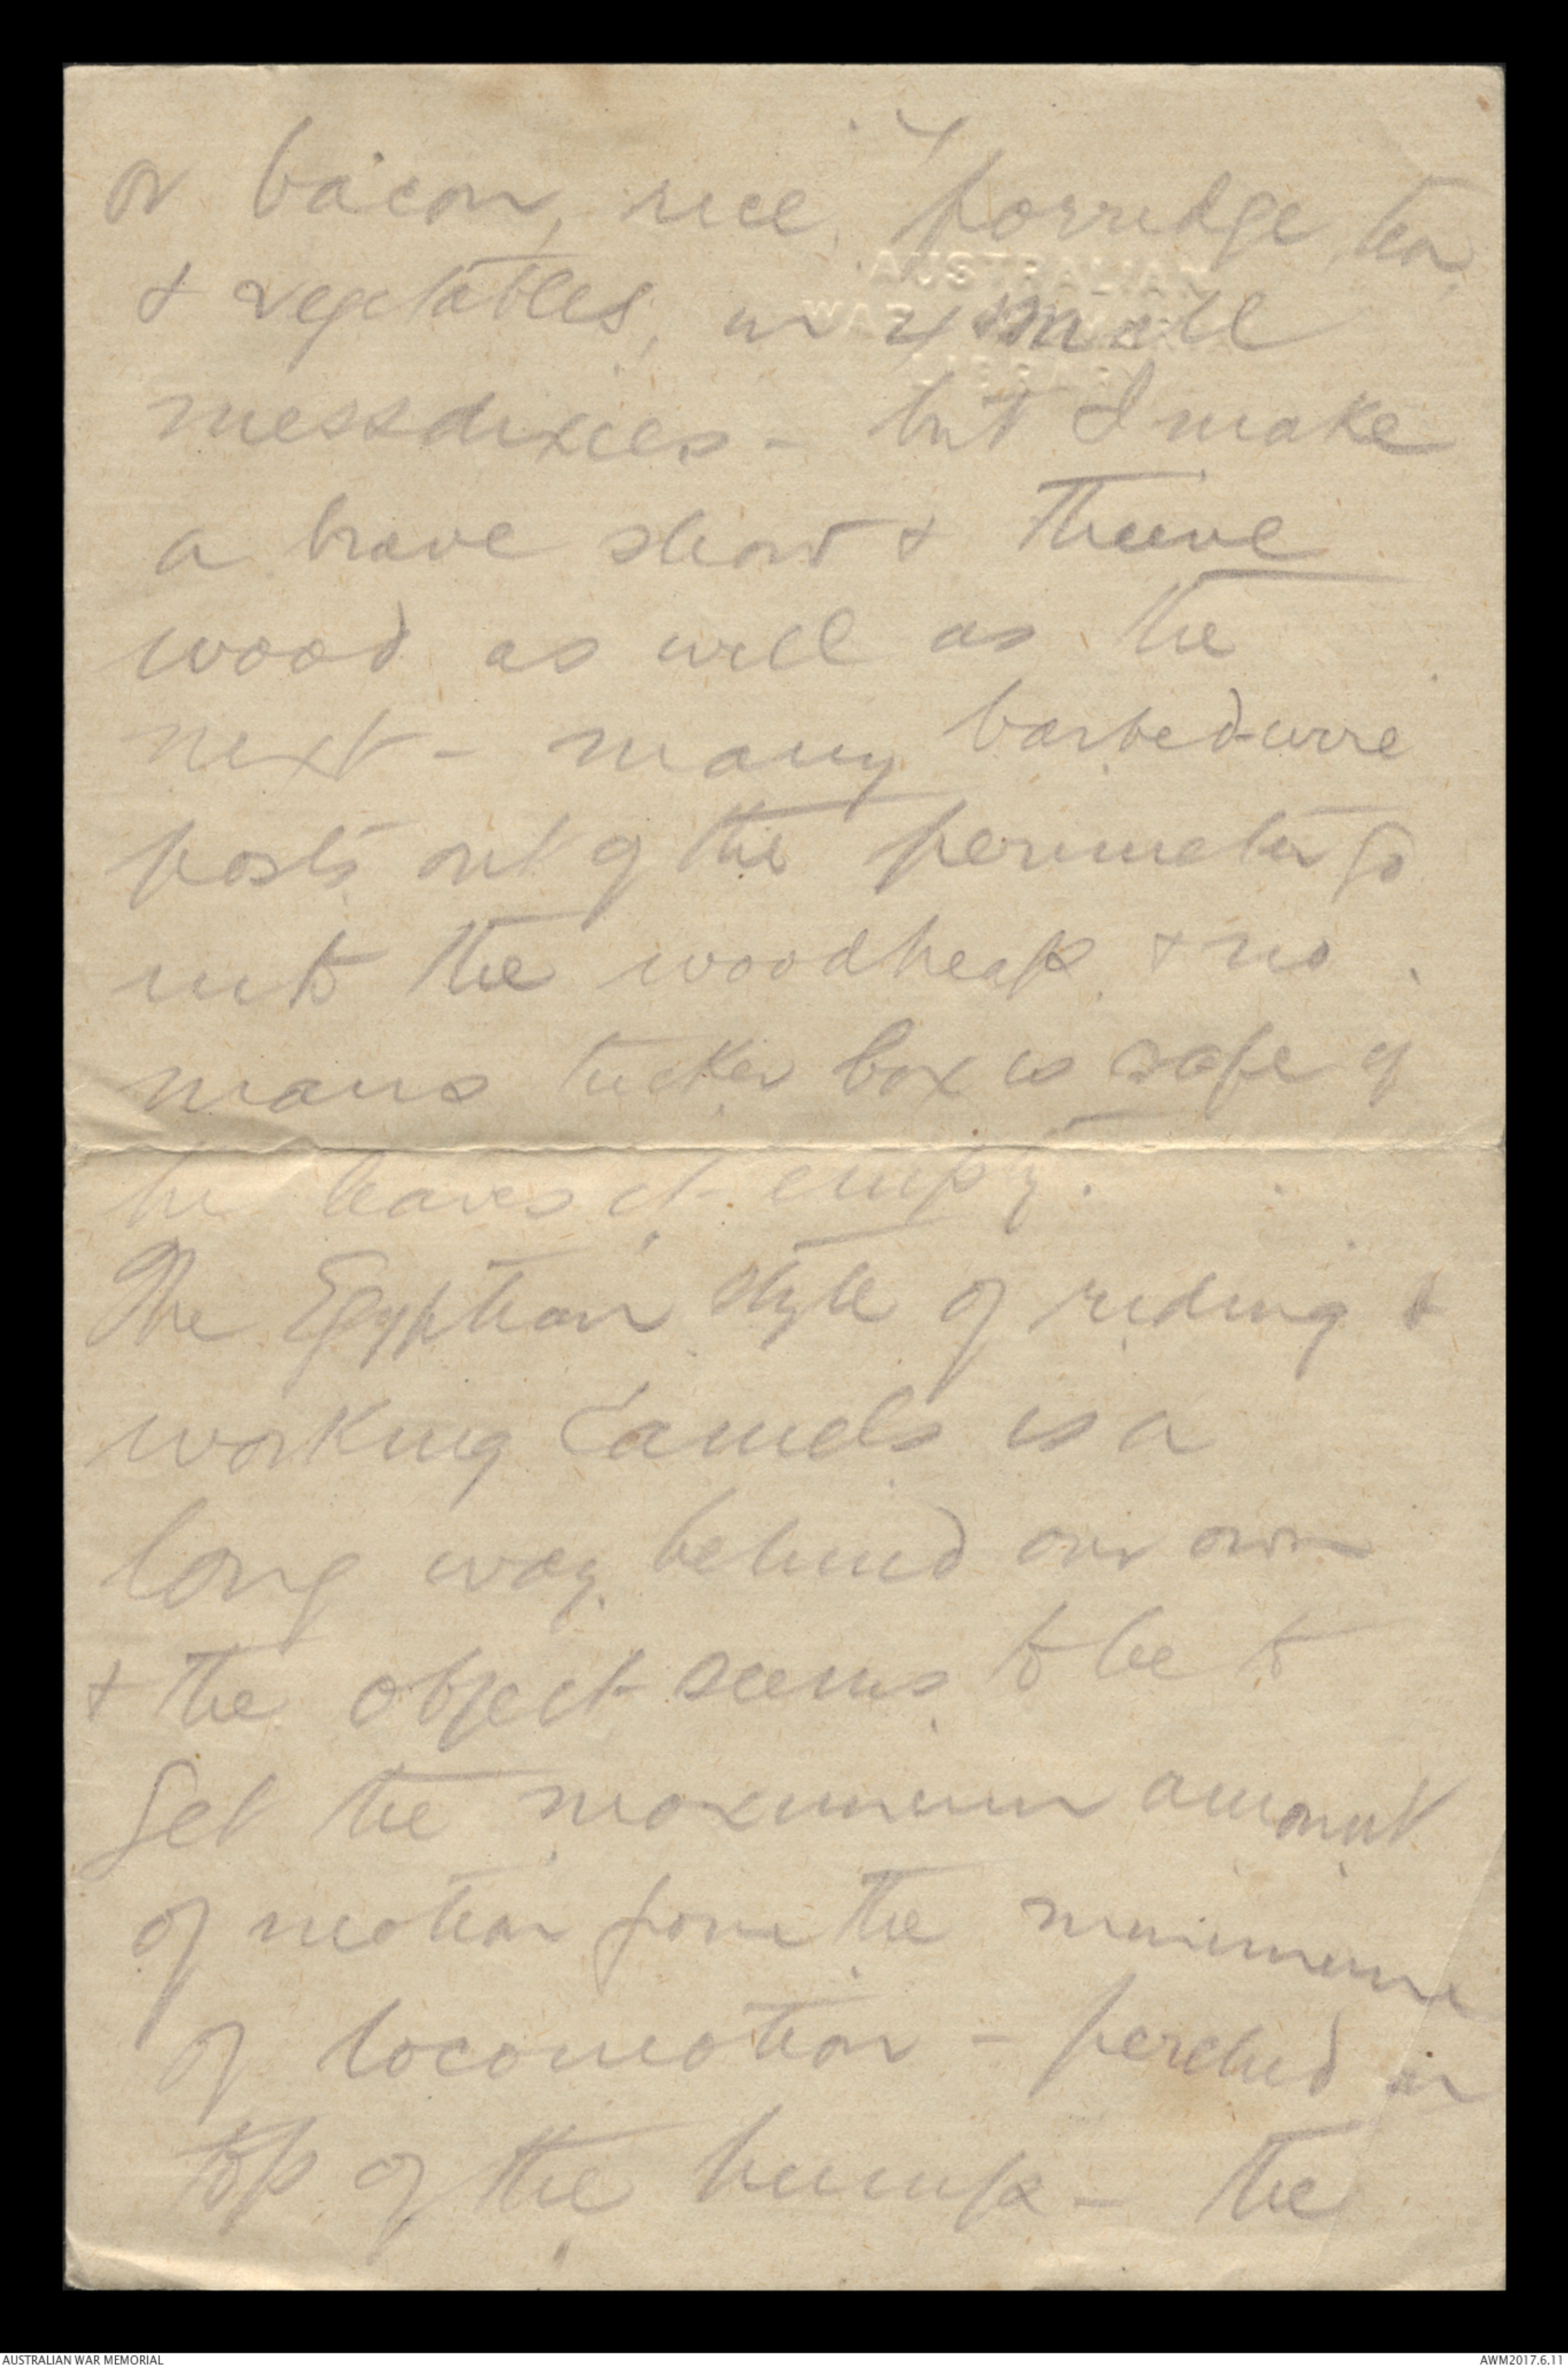 or bacon, rice, porridge, tea,
& vegetables, in 4 small
messdixies - but I make
a brave show & thieve
wood as well as the
next - many barbed-wire
posts out of the perimeter go
into the woodheap & no
mans tucker box is safe if
he leaves it empty.
The Egyptian style of riding &
working Camels is a
long way behind our own
& the object seems to be to
get the maximum amount
of motion from the minimum
of locomotion - perched on
top of the hump - the
AUSTRALIAN
WAR MEMORIAL
LIBRARY
AUSTRALIAN WAR MEMORIAL
AWM2017.6.11